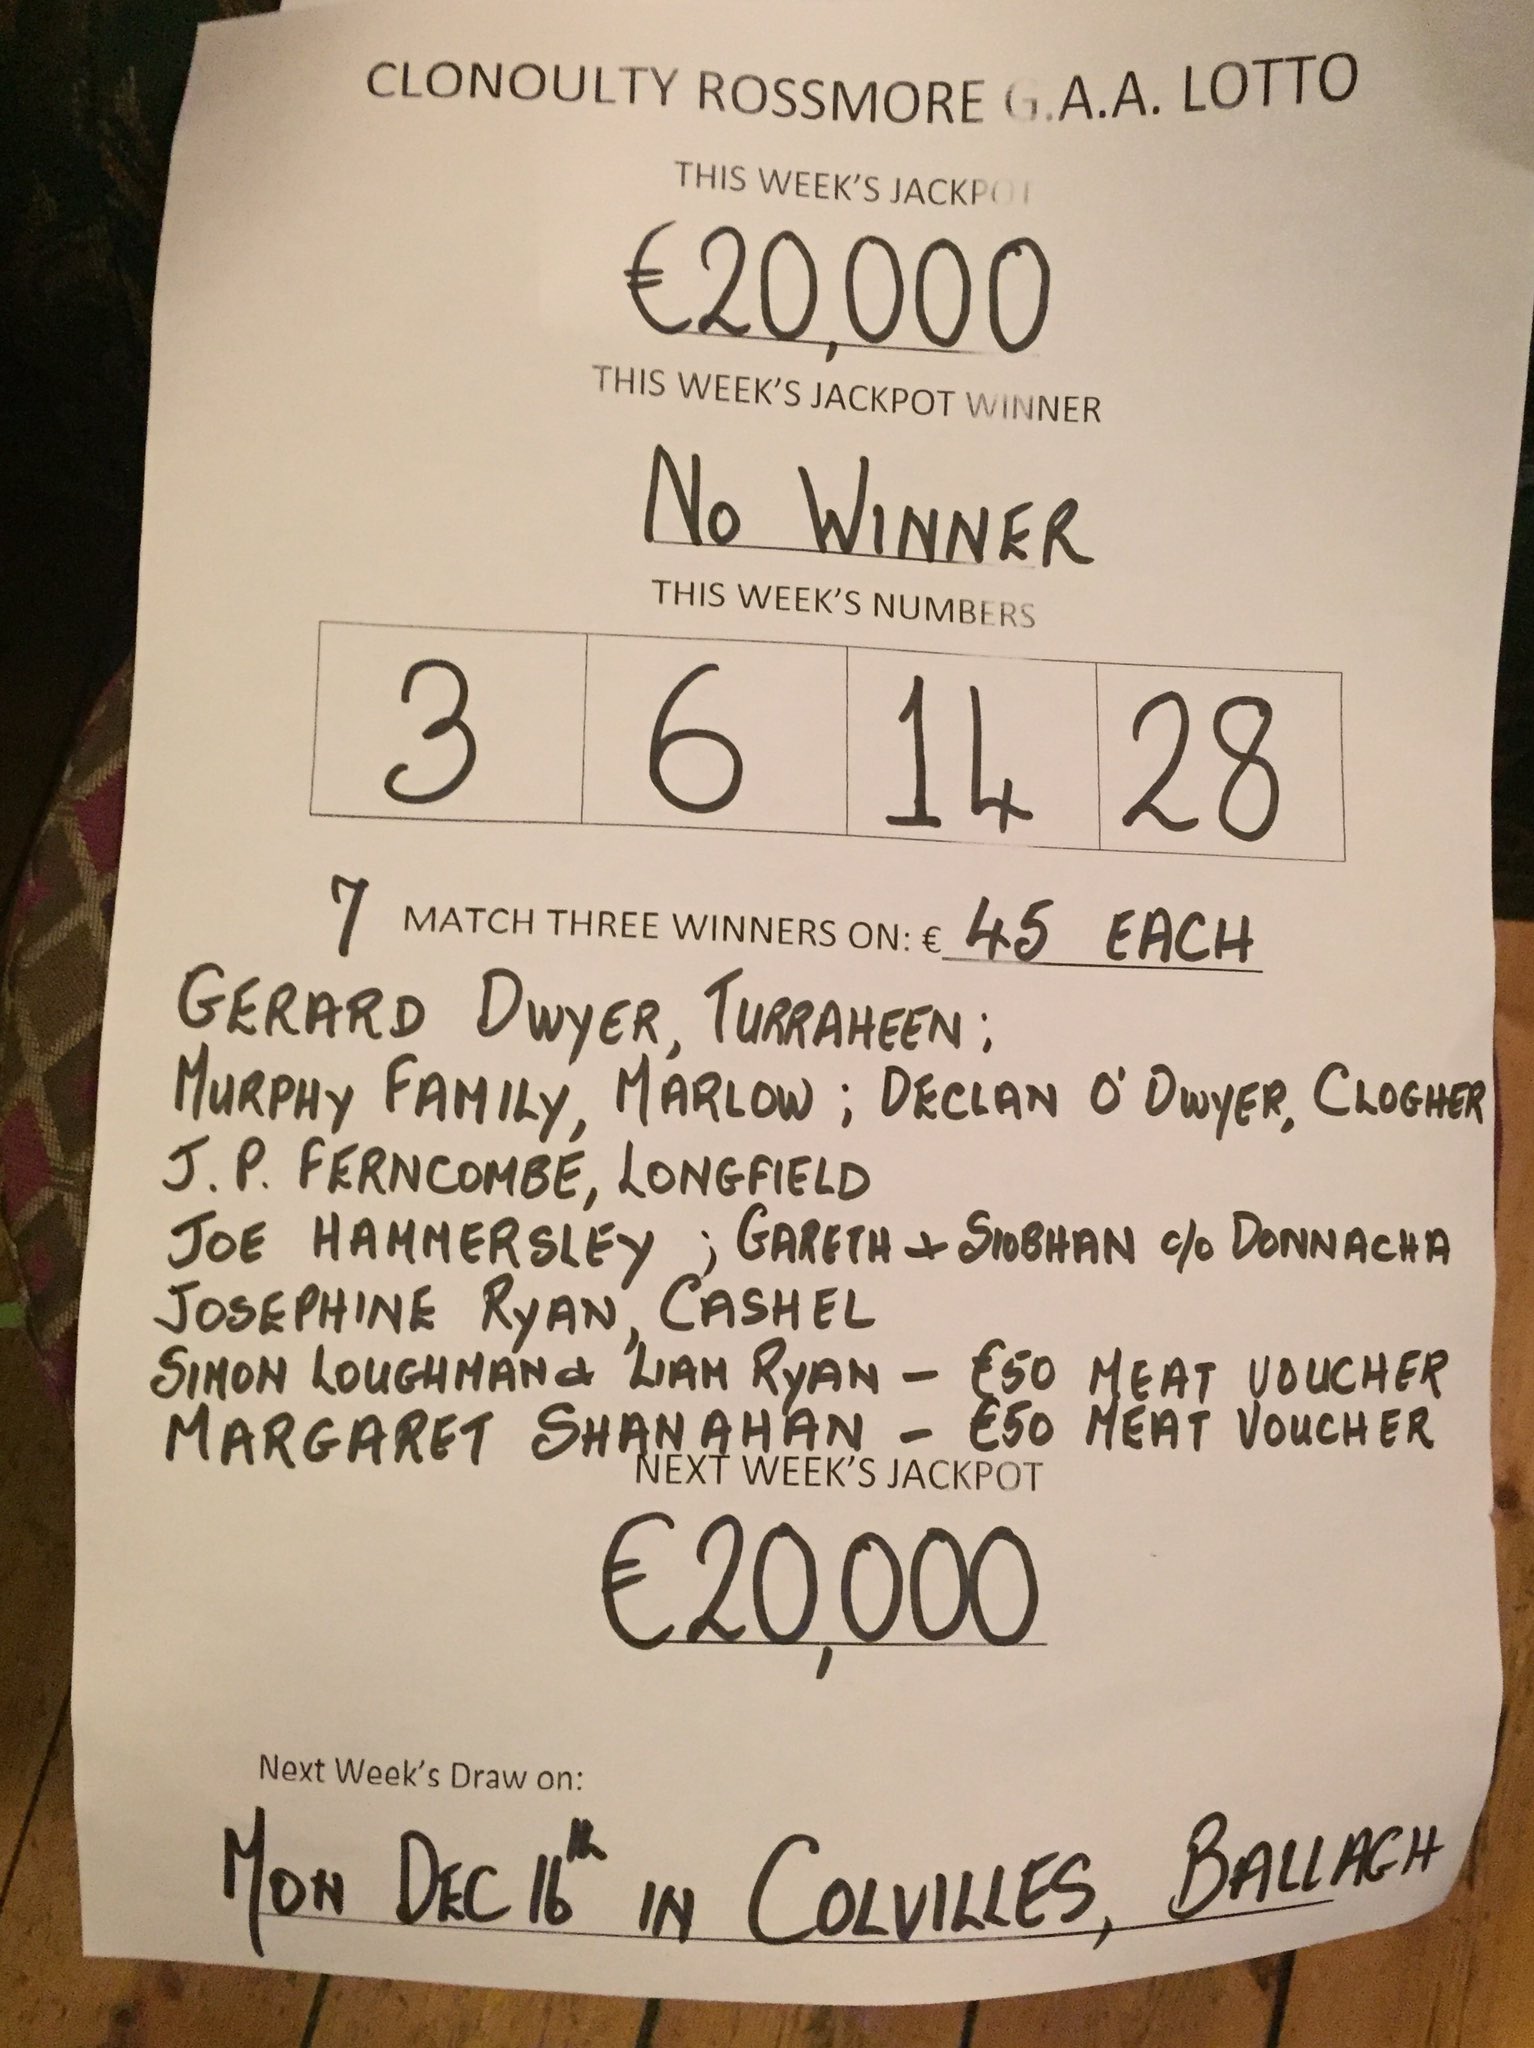 CLONOULTY ROSSMORE G.A.A. LOTTO
THIS WEEK'S JACKPOT
€20,000
THIS WEEK'S JACKPOT WINNER
NO WINNER
THIS WEEK'S NUMBERS
3 6 14 28
7 MATCH THREE WINNERS ON: € 45 EACH
GERARD DWYER, TURRAHEEN;
MURPHY FAMILY, MARLOW; DECLAN O'DWYER, CLOGHER
J.P. FERNCOMBE, LONGFIELD
JOE HAMMERSLEY; GARETH + SIOBHAN c/o DONNACHA
JOSEPHINE RYAN, CASHEL
SIMON LOUGHMAN & LIAM RYAN - €50 MEAT VOUCHER
MARGARET SHANAHAN - €50 MEAT VOUCHER
NEXT WEEK'S JACKPOT
€20,000
Next Week's Draw on:
MON DEC 16th IN COLVILLES, BALLAGH